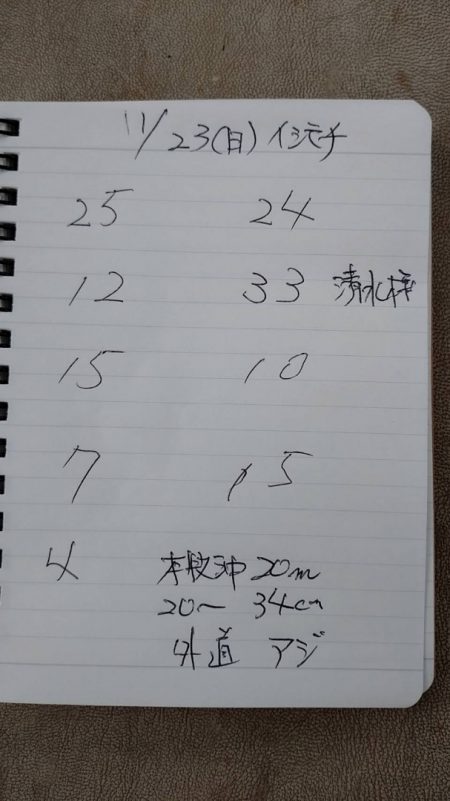 11/23(日) イシモチ
25 24
12 33 清水様
15 10
7 15
4 本牧沖 20m
20～34cm
外道 アジ